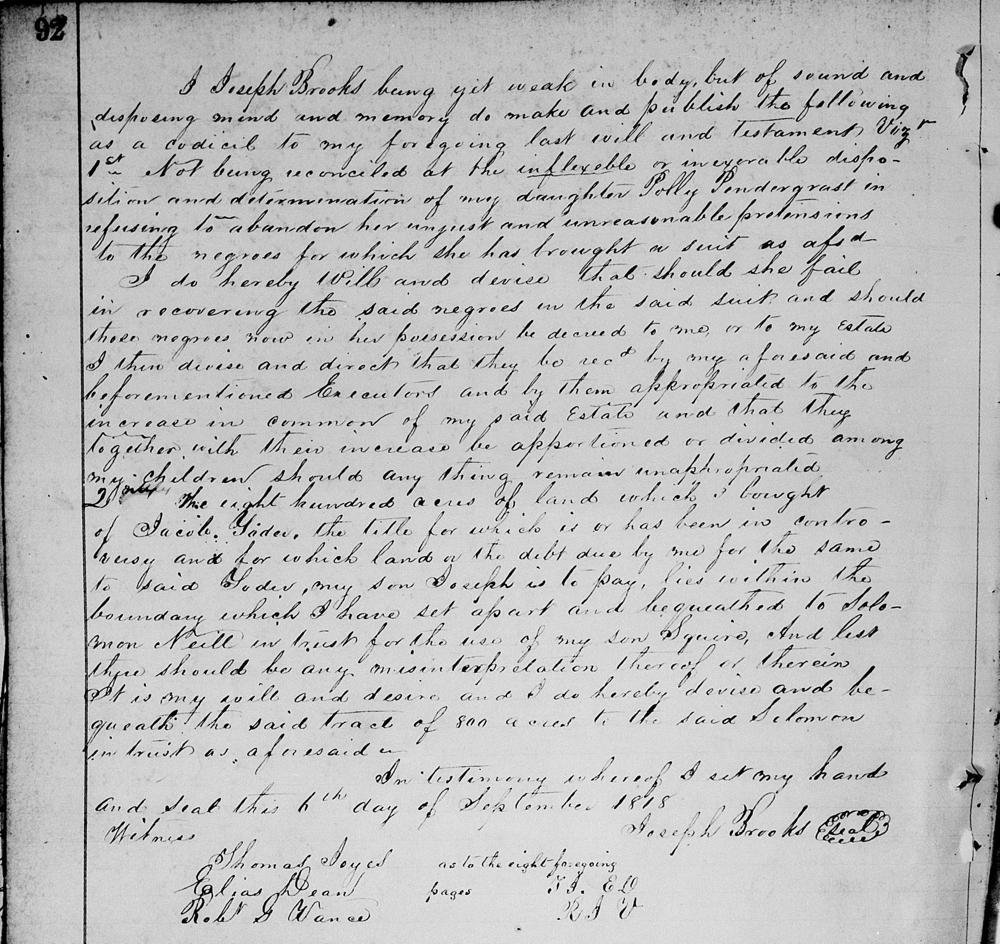 92
I Joseph Brooks being yet weak in body, but of sound and
disposing mind and memory do make and publish the following
as a codicil to my foregoing last will and testament Vizt
1st Not being reconciled at the inflexeble or inexorable dispo-
sition and determination of my daughter Polly Pendergrast in
refusing to abandon her unjust and unreasonable pretensions
to the negroes for which she has brought a suit as afsd
I do hereby Will and devise that should she fail
in recovering the said negroes in the said suit and should
those negroes now in her possession be decreed to me, or to my Estate
I then devise and direct that they be recd by my aforesaid and
beforementioned Executors and by them appropriated to the
increase in common of my said Estate and that they
together with their increase be apportioned or divided among
my children should any thing remain unappropriated
2nd The eight hundred acres of land which I bought
of Jacob. Yoder. the title for which is or has been in contro-
versy and for which land or the debt due by me for the same
to said Yoder, my son Joseph is to pay, lies within the
boundary which I have set apart and bequeathed to Solo-
mon Neill in trust for the use of my son Squire, And lest
there should be any misinterpretation thereof or therein
It is my will and desire and I do hereby devise and be-
queath the said tract of 800 acres to the said Solomon
in trust as aforesaid
In testimony whereof I set my hand
and seal this 6th day of September 1818
Joseph Brooks Seal
Witness
Thomas Joyes as to the eight foregoing
Elias Dean pages TJ. ED
Robt G Vance RJV